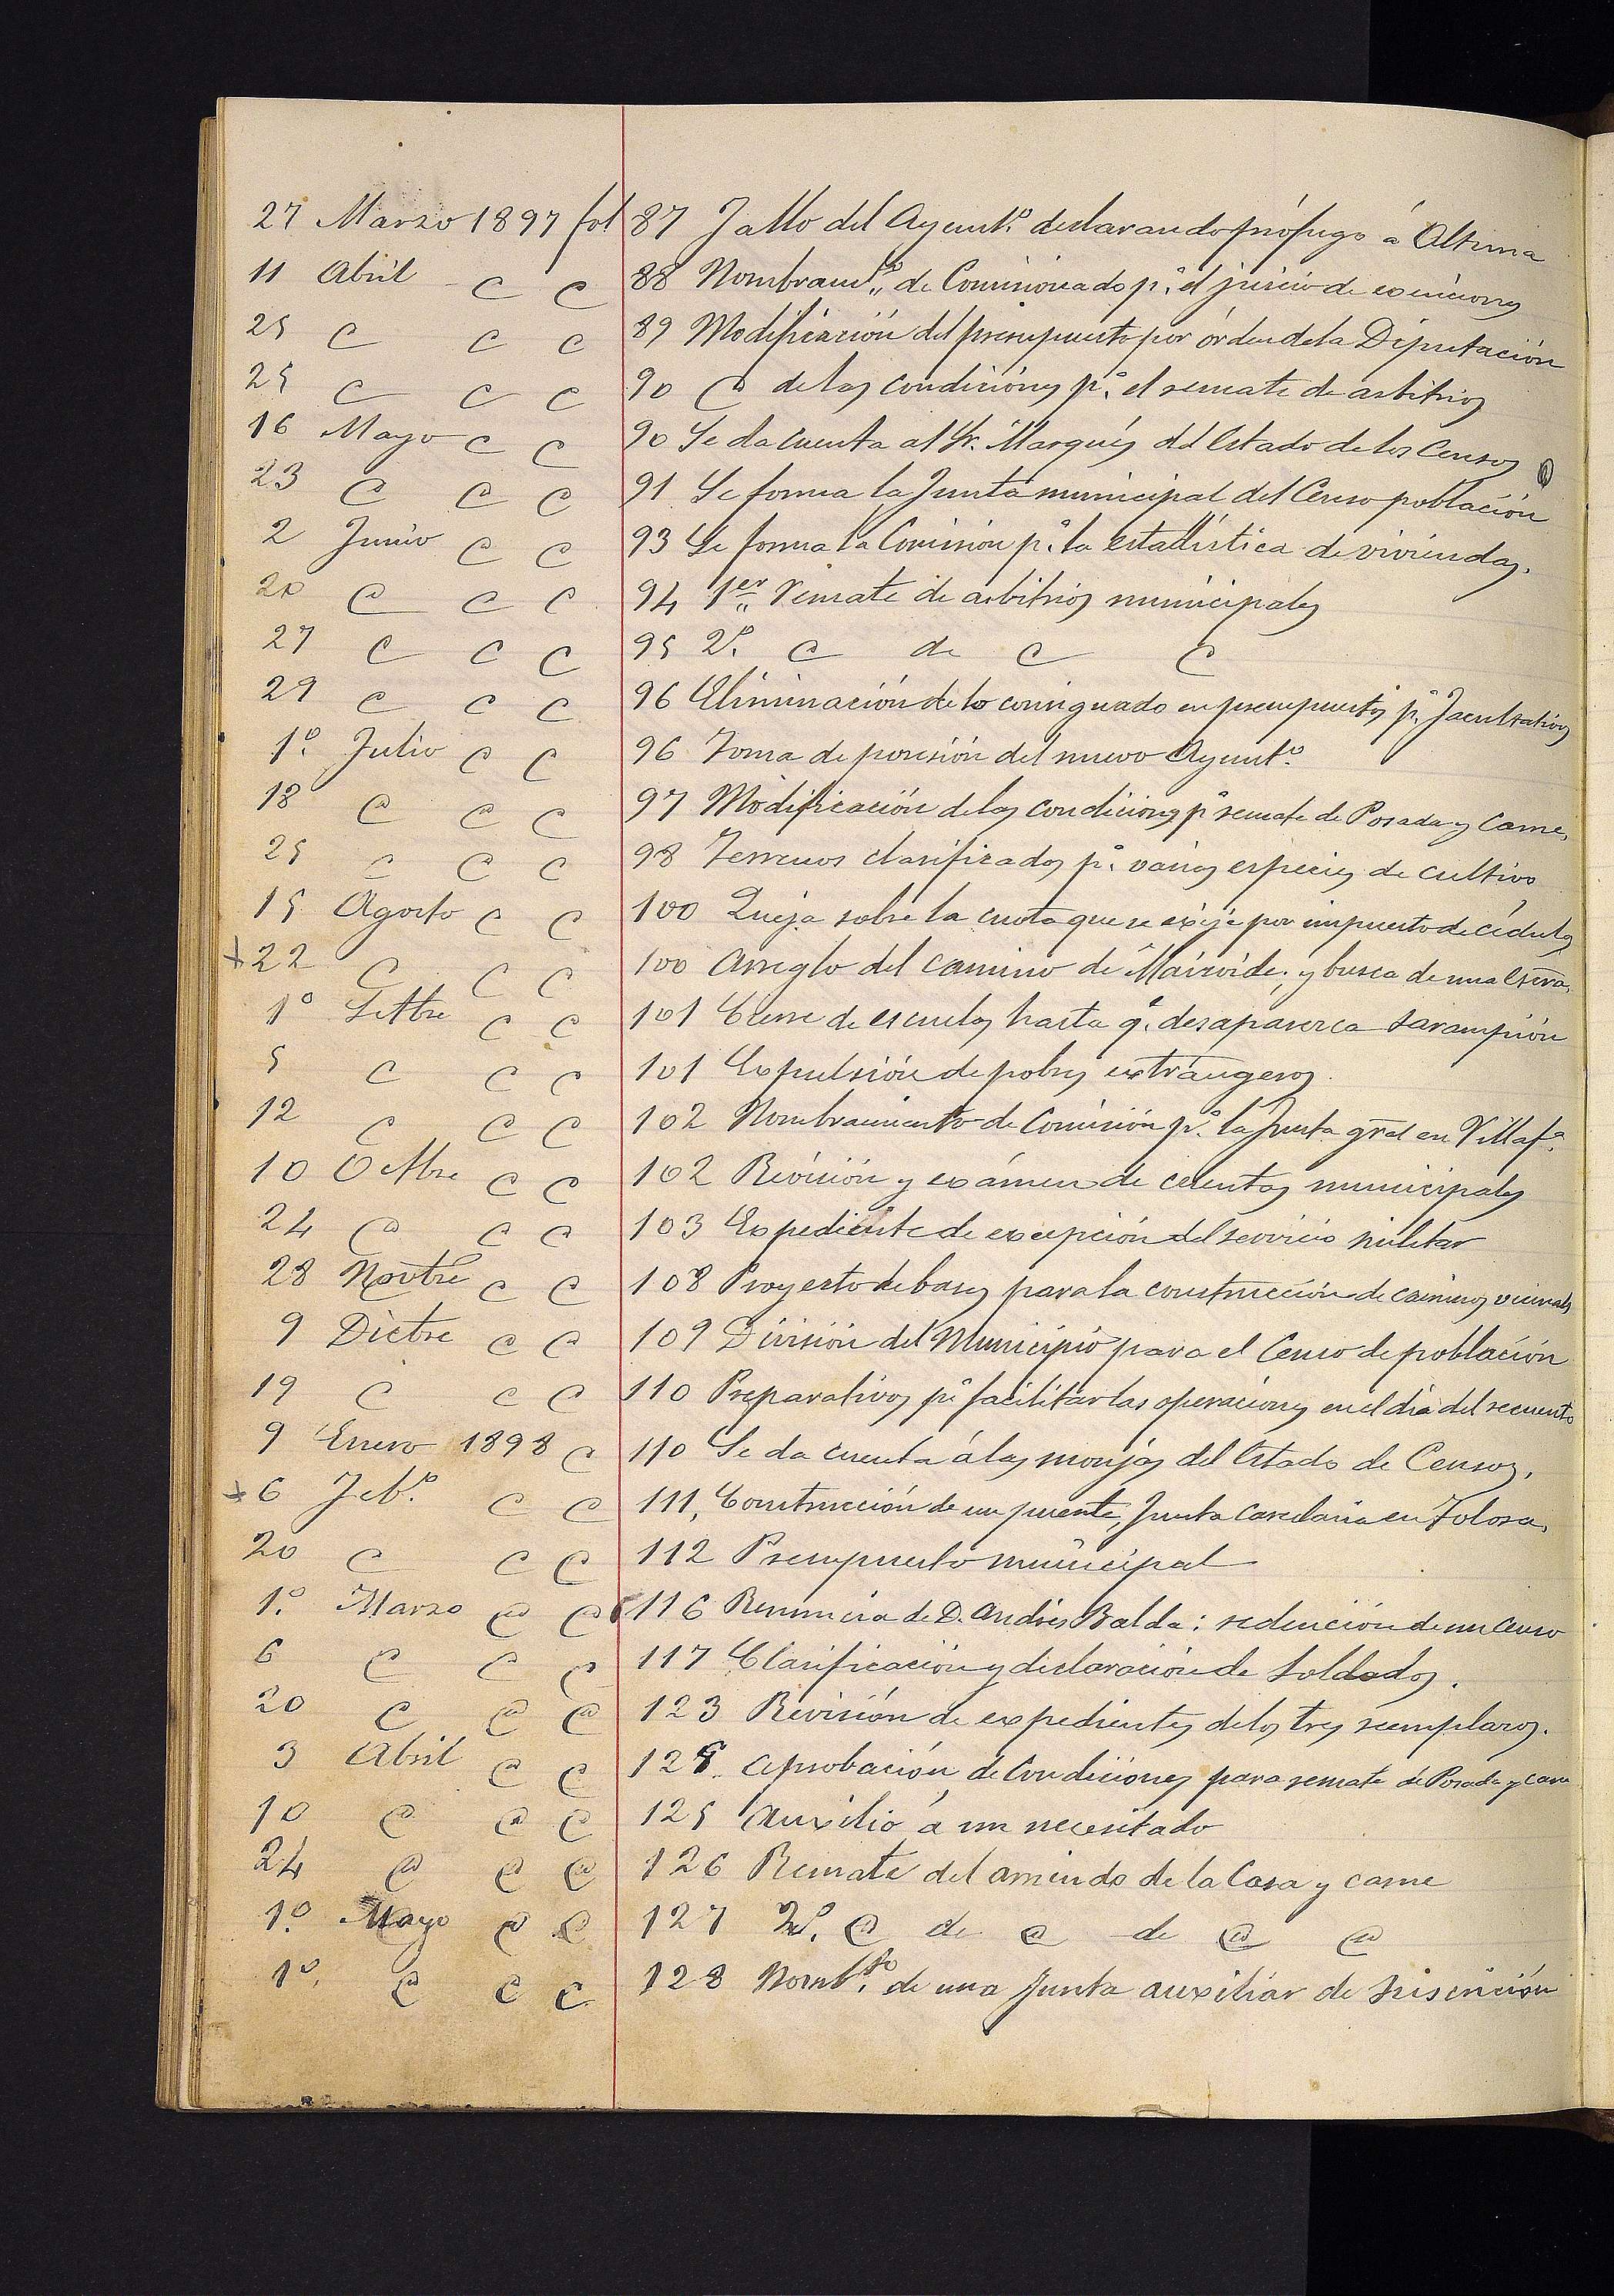 27 Marzo 1897 fol 87 Fallo del Ayunt.º declarando prófugo á Altuna
11 Abril " " 88 Nombram.to de Comisionado p.ª el juicio de exenciones
25 " " " 89 Modificación del presupuesto por órden de la Diputación
25 " " " 90 " de las condiciones p.ª el remate de arbitrios
16 Mayo " " 90 Se da cuenta al Sr. Marqués del Estado de los Censos
23 " " " 91 Se forma la Junta municipal del Censo población
2 Junio " " 93 Se forma la Comisión p.ª la estadística de viviendas.
20 " " " 94 1er Remate de arbitrios municipales
27 " " " 95 2º. " de " "
29 " " " 96 Eliminación de lo consignado en presupuestos p.ª Facultativos
1º. Julio " " 96 Toma de posesión del nuevo Ayunt.º
18 " " " 97 Modificación de las condiciones pª remate de Posada y Carne,
25 " " " 98 Terrenos clasificados p.ª varias especies de cultivo
15 Agosto " " 100 Queja sobre la cuota que se exije por impuesto de cédulas
+22 " " " 100 Arreglo del camino de ; y busca de una
1º Settbre " " 101 Cierre de escuelas hasta q.e desaparezca sarampión
5 " " " 101 Expulsión de pobres extrangeros.
12 " " " 102 Nombramiento de Comisión p.ª la Junta gral en Villafª.
10 Octbre " " 102 Revisión y exámen de cuentas municipales
24 " " " 103 Expediente de excepción del servicio militar
28 Novbre " " 108 Proyecto de bases para la construcción de caminos vecinals
9 Dictre " " 109 División del Municipio para el Censo de población
19 " " " 110 Preparativos pª facilitar las operaciones en el día del recuento
9 Enero 1898 " 110 Se da cuenta á las monjas del Estado de Censos.
+6 Feb.º " " 111, Construcción de un puente, Junta carcelaria en Tolosa,
20 " " " 112 Presupuesto municipal
1º. Marzo " " 116 Renuncia de D. Andrés Balda: redención de un Censo
6 " " " 117 Clasificación y declaración de Soldados.
20 " " " 123 Revisión de expedientes de los tres reemplazos.
3 Abril " " Aprobación de Condiciones para remate de Posada y carn
10 " " " 125 Auxilio á un necesitado
24 " " " 126 Remate del arriendo de la Casa y carne
1º. Mayo " " 127 2º. " de " de " "
1º. " " " 128 Nomb.to de una Junta auxiliar de